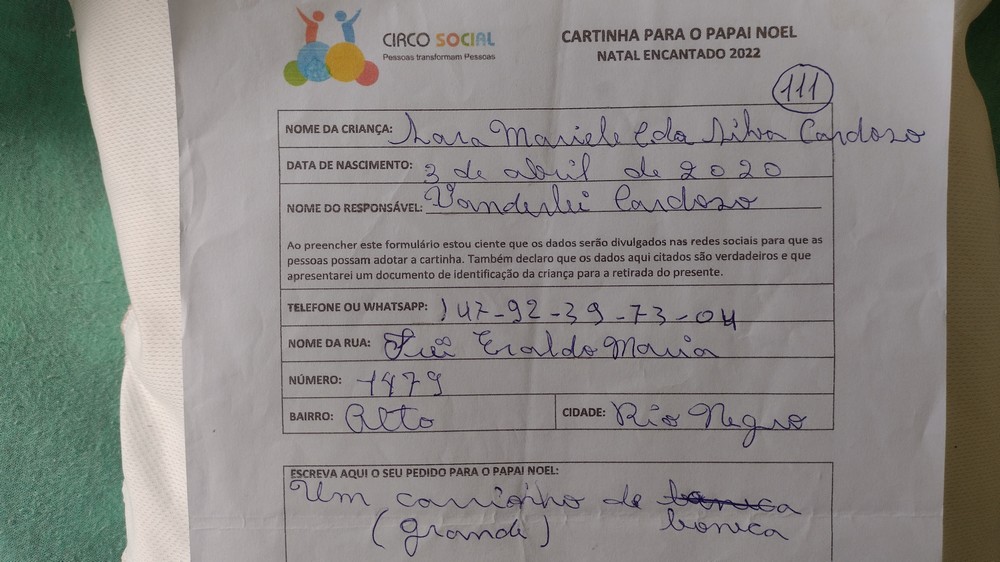 CIRCO SOCIAL
Pessoas transformam Pessoas
CARTINHA PARA O PAPAI NOEL
NATAL ENCANTADO 2022
111
NOME DA CRIANÇA: Lara Mariele C da Silva Cardozo
DATA DE NASCIMENTO: 3 de abril de 2020
NOME DO RESPONSÁVEL: Vanderlei Cardozo
Ao preencher este formulário estou ciente que os dados serão divulgados nas redes sociais para que as
pessoas possam adotar a cartinha. Também declaro que os dados aqui citados são verdadeiros e que
apresentarei um documento de identificação da criança para a retirada do presente.
TELEFONE OU WHATSAPP: 147-92-39-73-04
NOME DA RUA: Eraldo Maria
NÚMERO: 1479
BAIRRO: Alto CIDADE: Rio Negro
ESCREVA AQUI O SEU PEDIDO PARA O PAPAI NOEL:
Um carrinho de
(grande) boneca